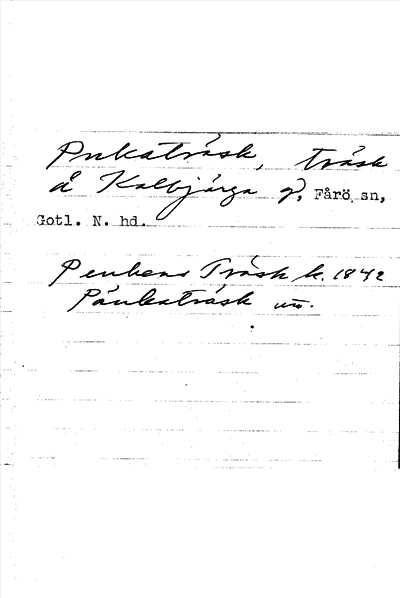 Pukaträsk, träsk
å Kalbjärga g, Fårö sn,
Gotl. N. hd.
Penkens Träsk k. 1842
Pänkaträsk